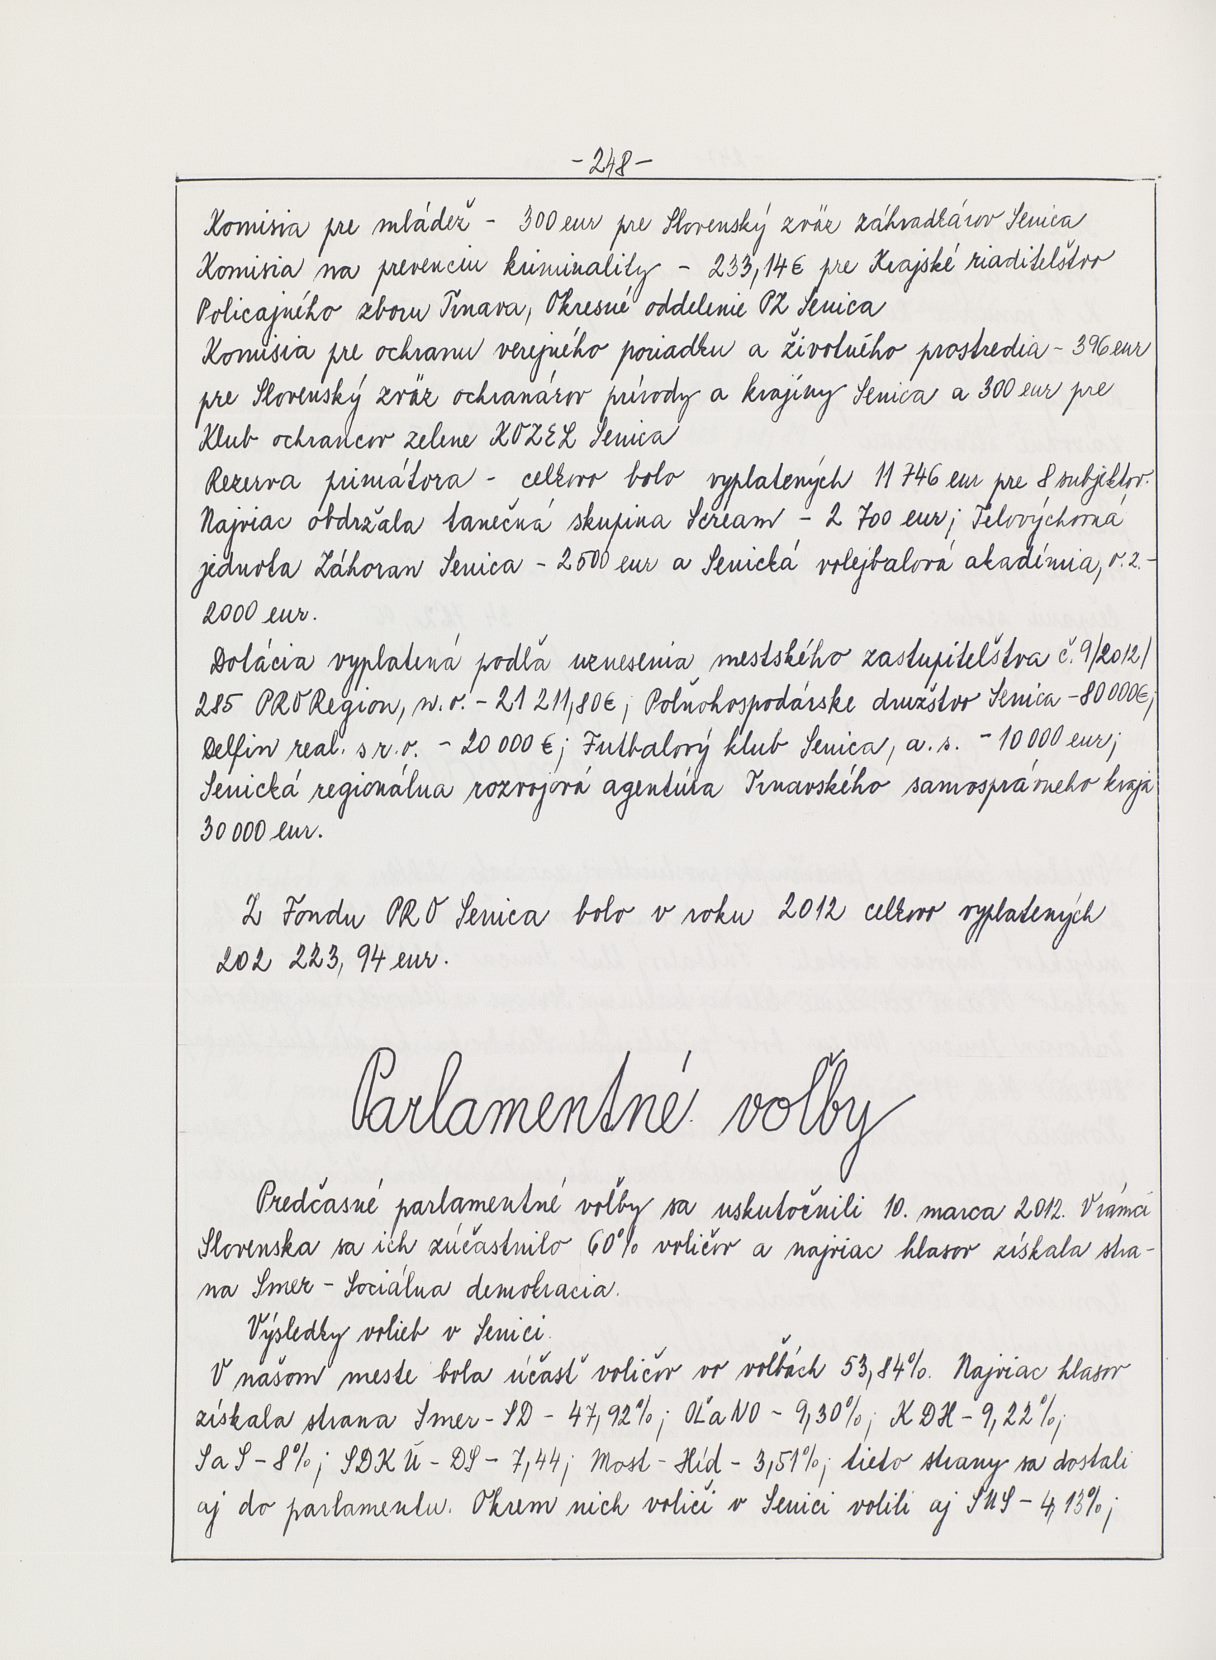 - 248 -
Komisia pre mládež - 300 eur pre Slovenský zväz záhradkárov Senica
Komisia na prevenciu kriminality - 233,14 € pre Krajské riaditeľstvo
Policajného zboru Trnava, Okresné oddelenie PZ Senica
Komisia pre ochranu verejného poriadku a životného prostredia - 396 eur
pre Slovenský zväz ochranárov prírody a krajiny Senica a 300 eur pre
Klub ochrancov zelene KOZEL Senica
Rezerva primátora - celkovo bolo vyplatených 11 746 eur pre 8 subjektov.
Najviac obdržala tanečná skupina Scream - 2 700 eur; Telovýchovná
jednota Záhoran Senica - 2500 eur a Senická volejbalová akadémia, o. z. -
2000 eur.
Dotácia vyplatená podľa uznesenia mestského zastupiteľstva č. 9/2012/
285 PRO Region, n. o. - 21 211,80 €; Poľnohospodárske družstvo Senica - 80 000 €;
Delfin real. s r. o. - 20 000 €; Futbalový klub Senica, a. s. - 10 000 eur;
Senická regionálna rozvojová agentúra Trnavského samosprávneho kraja
30 000 eur.
Z Fondu PRO Senica bolo v roku 2012 celkovo vyplatených
202 223, 94 eur.
Parlamentné voľby
Predčasné parlamentné voľby sa uskutočnili 10. marca 2012. V rámci
Slovenska sa ich zúčastnilo 60% voličov a najviac hlasov získala stra-
na Smer - Sociálna demokracia.
Výsledky volieb v Senici.
V našom meste bola účasť voličov vo voľbách 53,84%. Najviac hlasov
získala strana Smer - SD - 47,92%; OĽaNO - 9,30%; KDH - 9,22%;
SaS - 8%; SDKÚ - DS - 7,44; Most - Híd - 3,51%; tieto strany sa dostali
aj do parlamentu. Okrem nich voliči v Senici volili aj SNS - 4,13%;